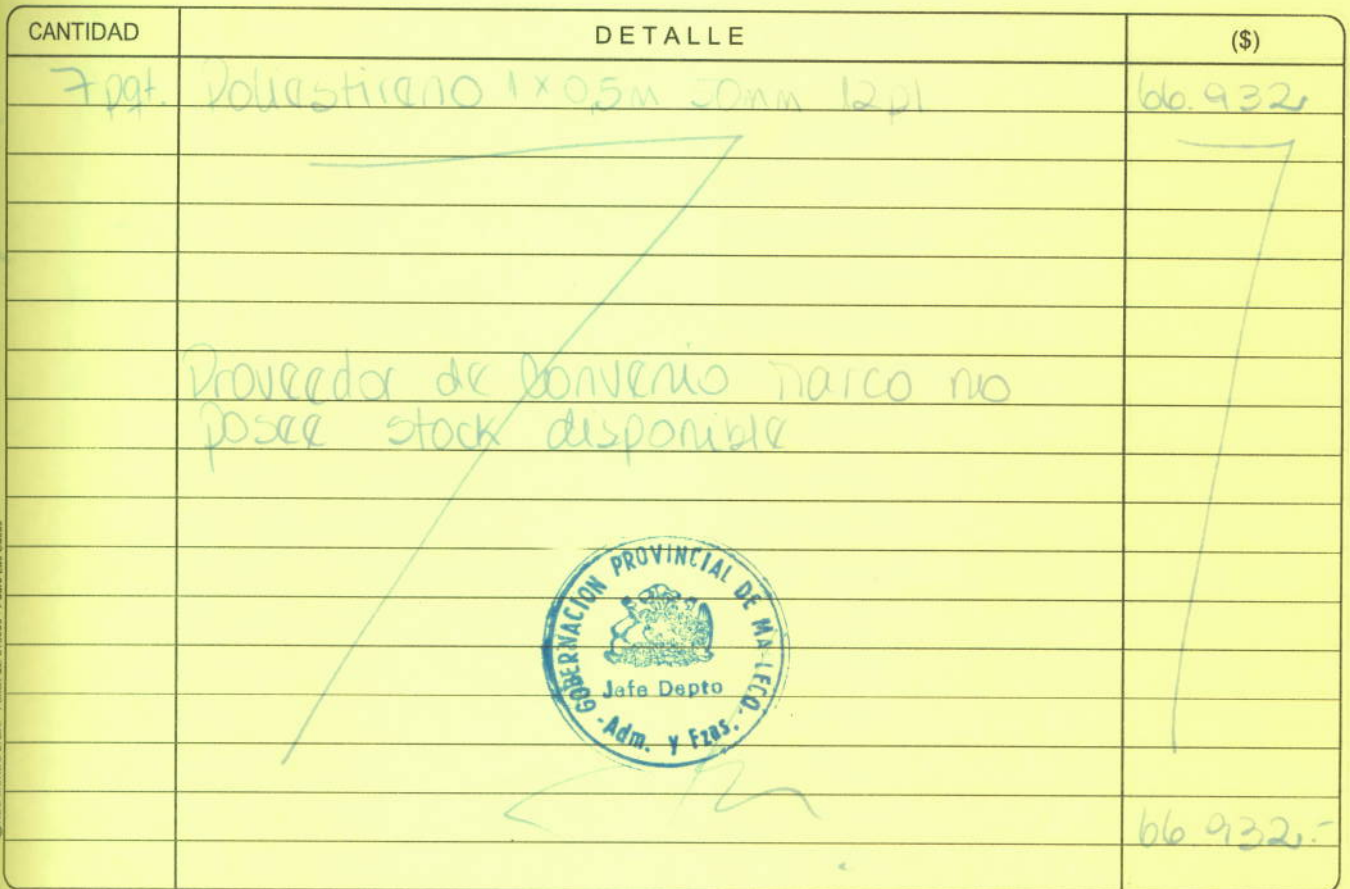 CANTIDAD DETALLE ($)
7 pqt. Poliestireno 1 x 0,5m 50mm 12pl 66.932,-
Proveedor de Convenio Marco no
posee stock disponible
GOBERNACION PROVINCIAL DE MALLECO.
Jefe Depto
-Adm. y Fzas.
66.932.-